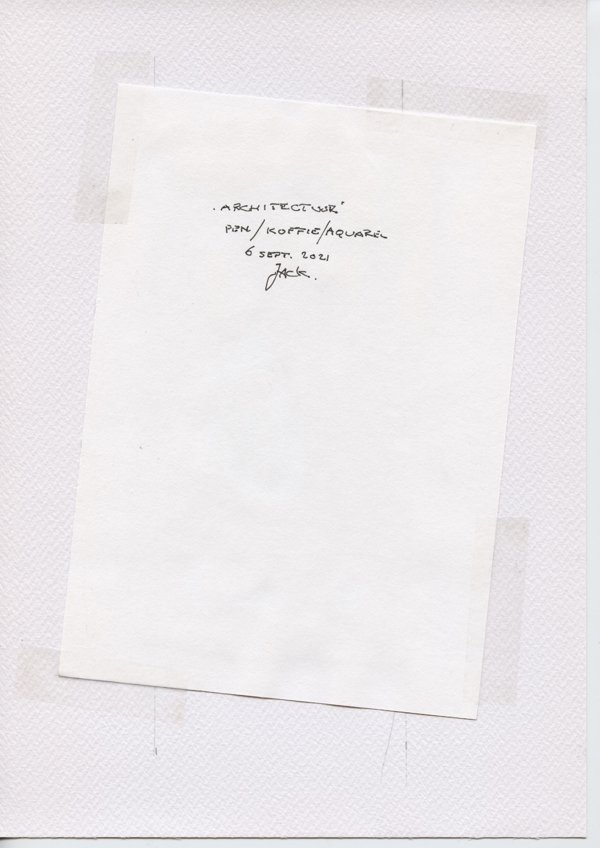 'ARCHITECTUUR'
PEN/KOFFIE/AQUAREL
6 SEPT. 2021
JACK.